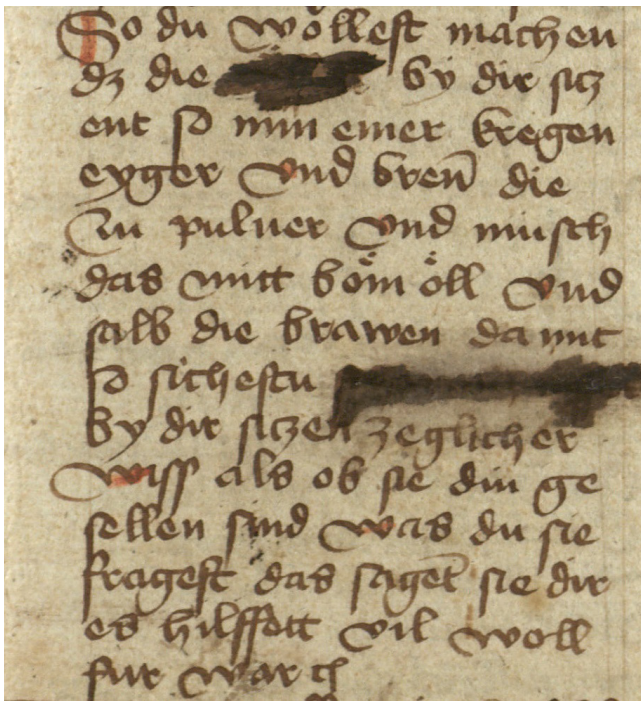 So du wöllest machen
dz die by dir sitz
ent so nim einer kregen
eyger vnd bren̄ die
zu puluer vnd misch
das mitt böm öll vnd
salb die brawen da mit
so sichestu
by dir sitzen zeglicher
wiss als ob sie din ge
sellen sind was du sie
fragest das sagēt sie dir
es hilffett vil woll
fur war